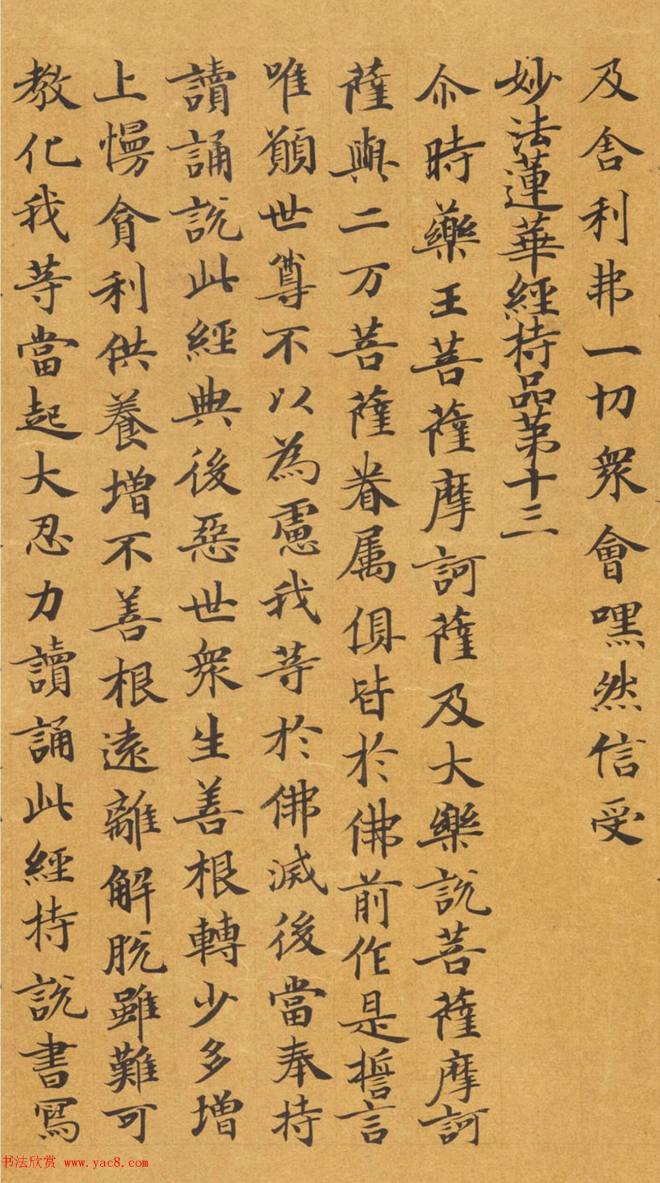 及舎利弗一切衆會嘿然信受
妙法蓮華經持品第十三
尒時藥王菩薩摩訶薩及大樂說菩薩摩訶
薩與二万菩薩眷属俱皆於佛前作是誓言
唯願世尊不以為慮我等於佛滅後當奉持
讀誦說此經典後惡世衆生善根轉少多增
上慢貪利供養增不善根遠離解脫雖難可
教化我等當起大忍力讀誦此經持說書寫
书法欣赏 www.yac8.com